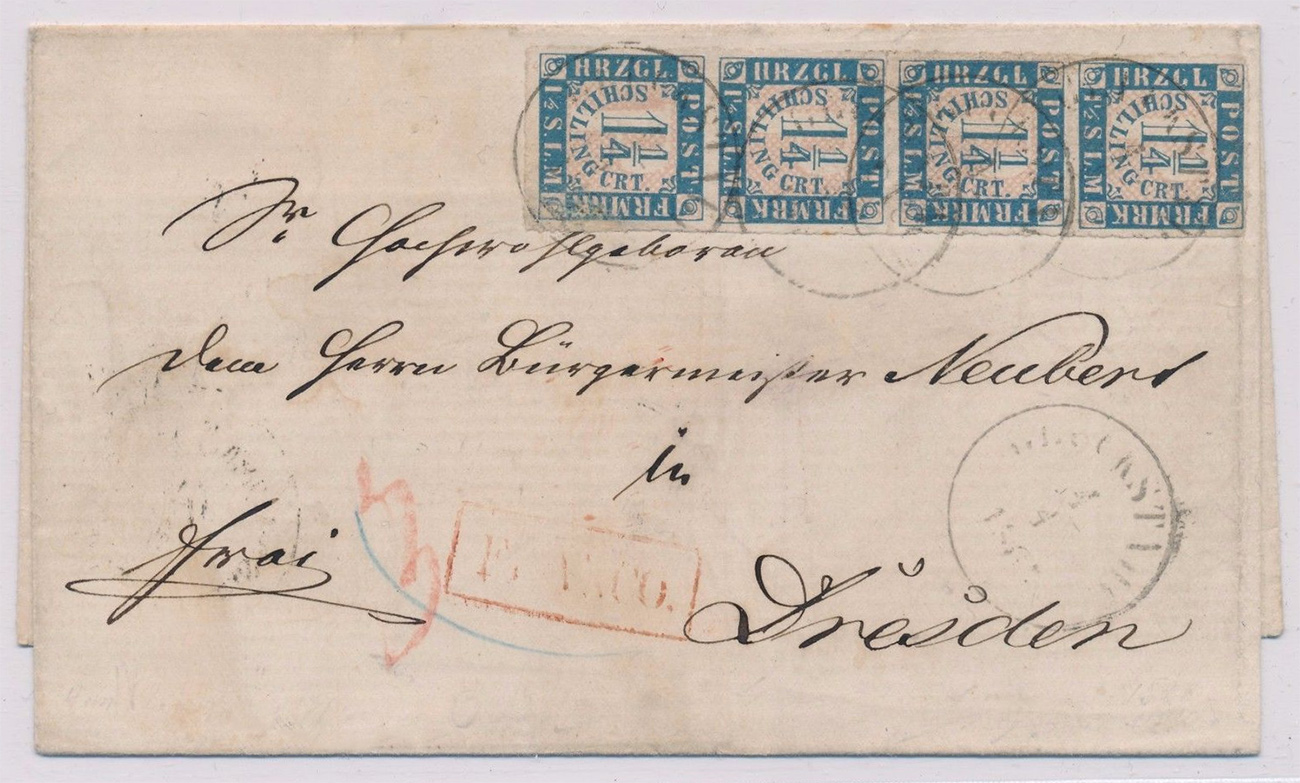 HRZGL POST FRMRK 1⅓ S.L.M. SCHILLING CRT. 1¼
HRZGL POST FRMRK 1⅓ S.L.M. SCHILLING CRT. 1¼
HRZGL POST FRMRK 1⅓ S.L.M. SCHILLING CRT. 1¼
HRZGL POST FRMRK 1⅓ S.L.M. SCHILLING CRT. 1¼
Sr Hochwohlgeboren
dem Herrn Bürgermeister Neubert
in
frei
3
Dresden